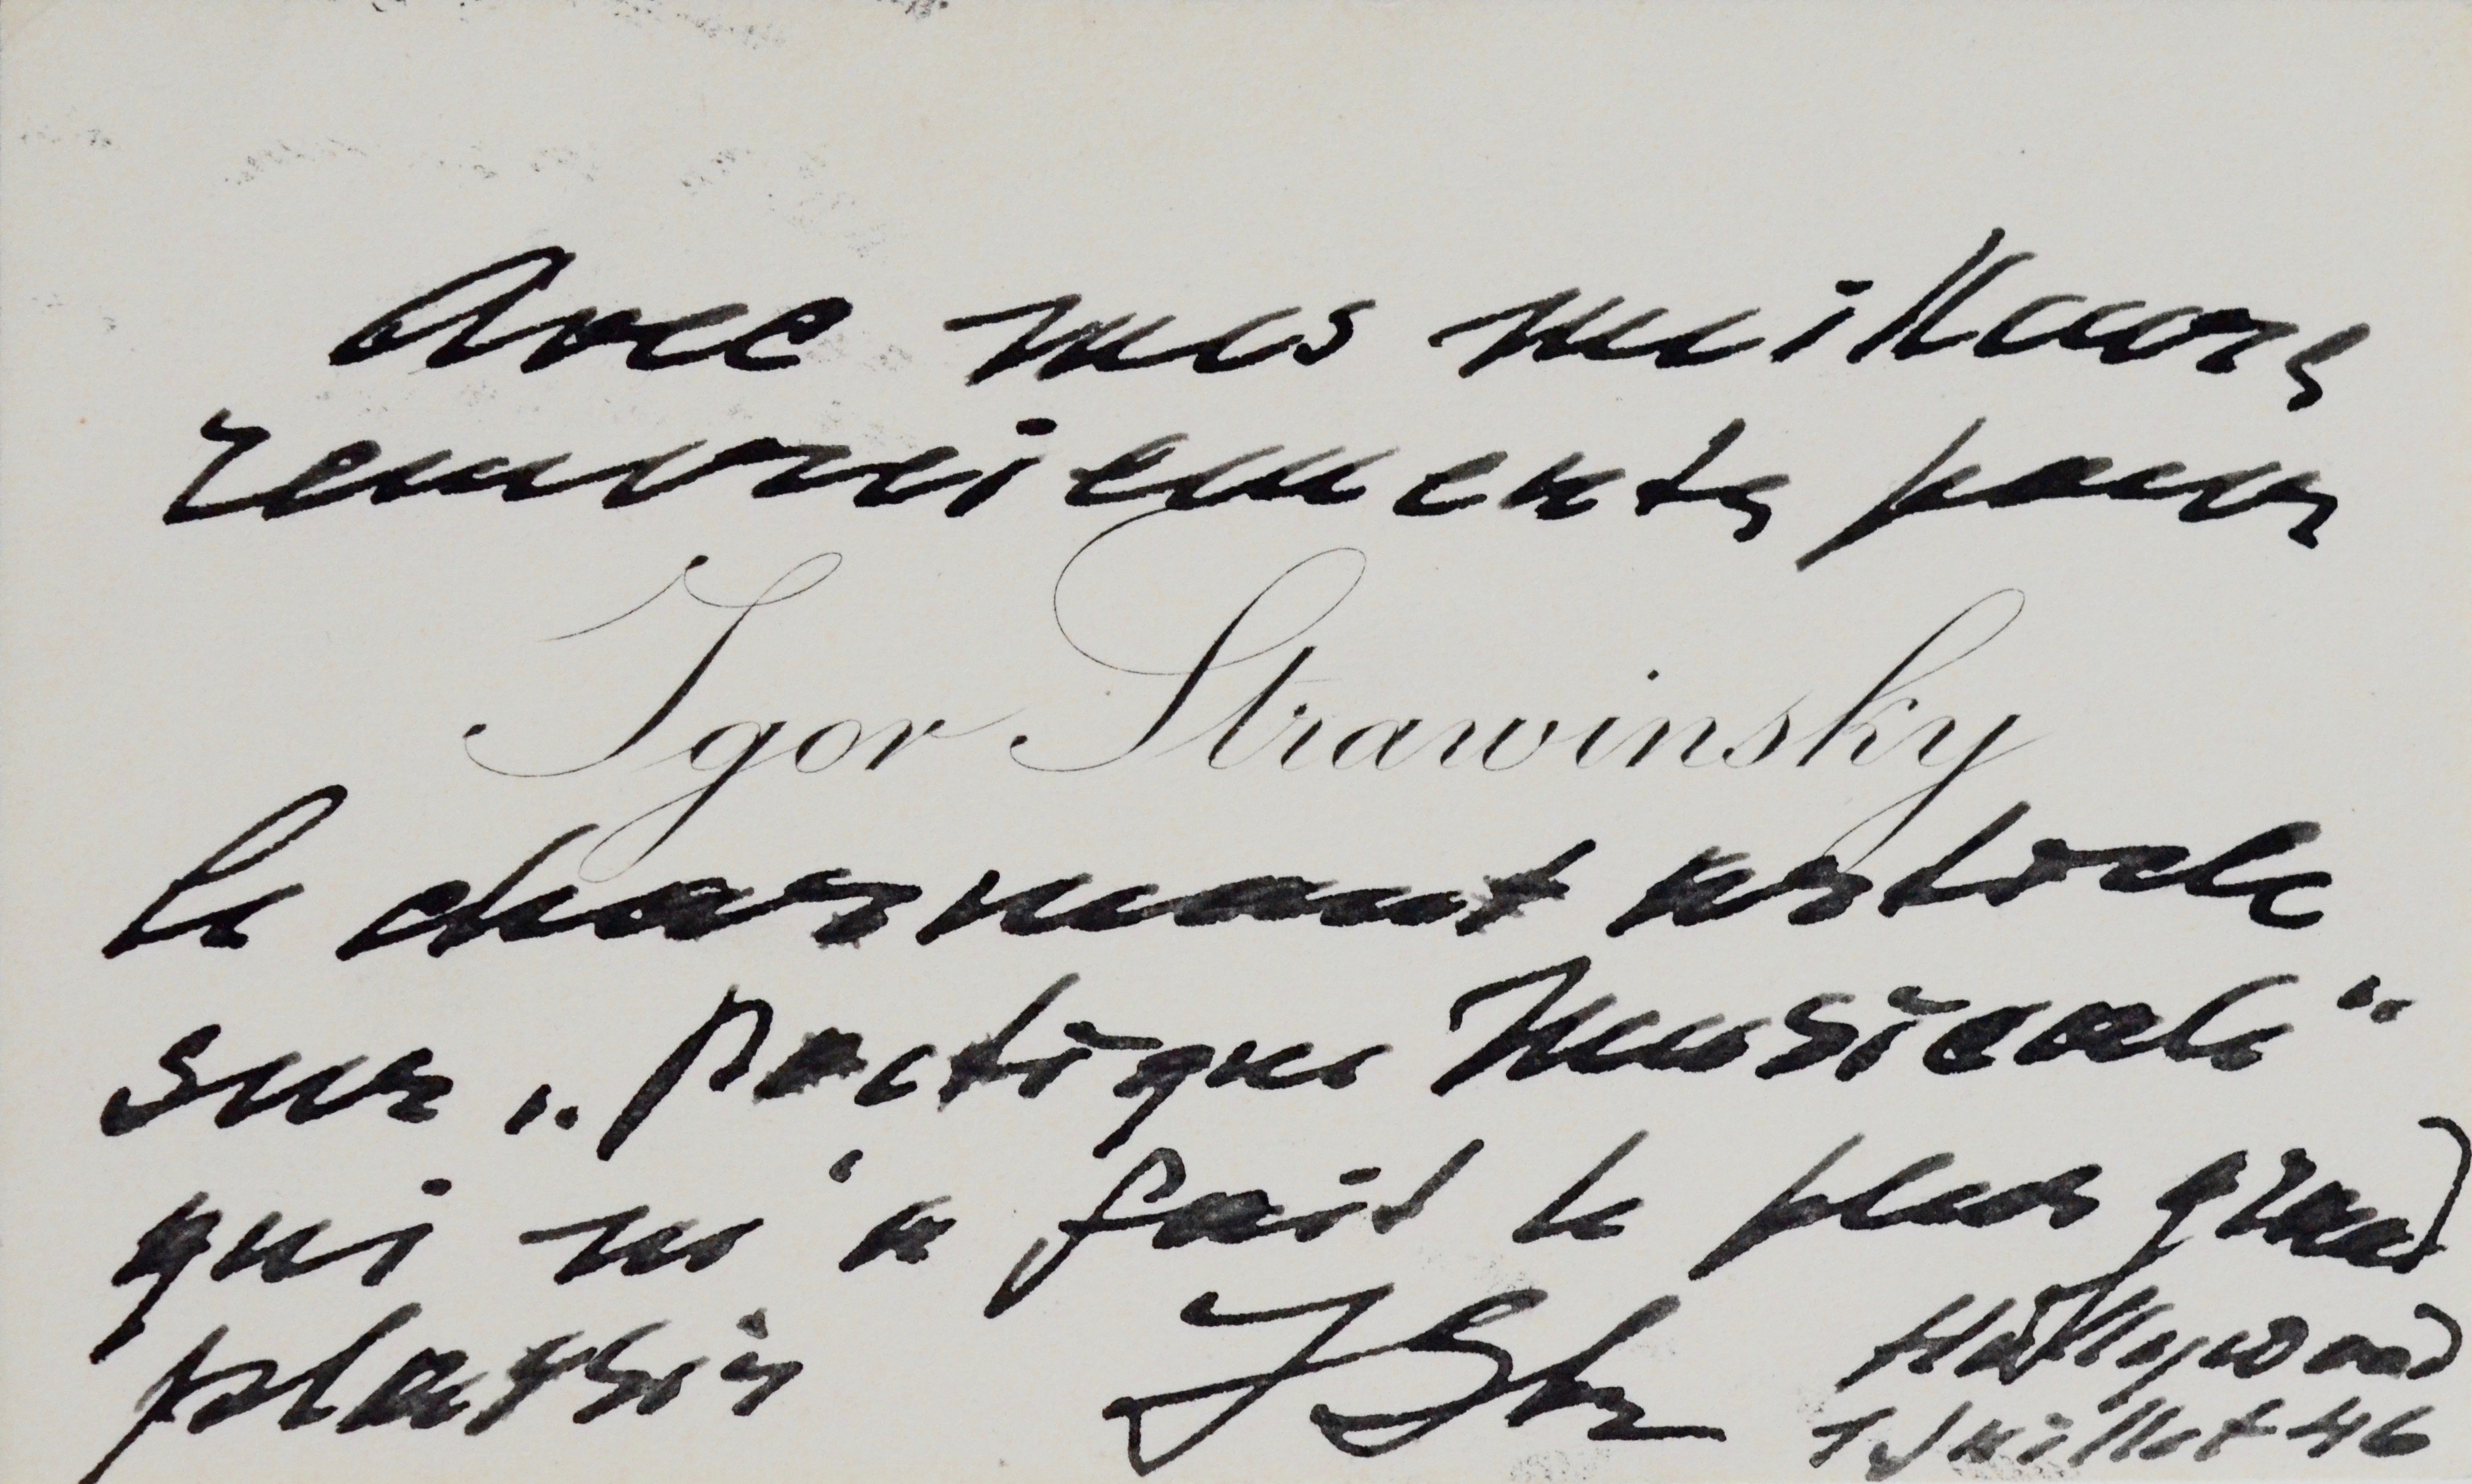 Avec mes meilleurs
remerciements pour
Igor Strawinsky
le charmant article
sur „Poétique Musicale"
qui m'a fait le plus grand
plaisir IStr Hollywood
1 Juillet 46